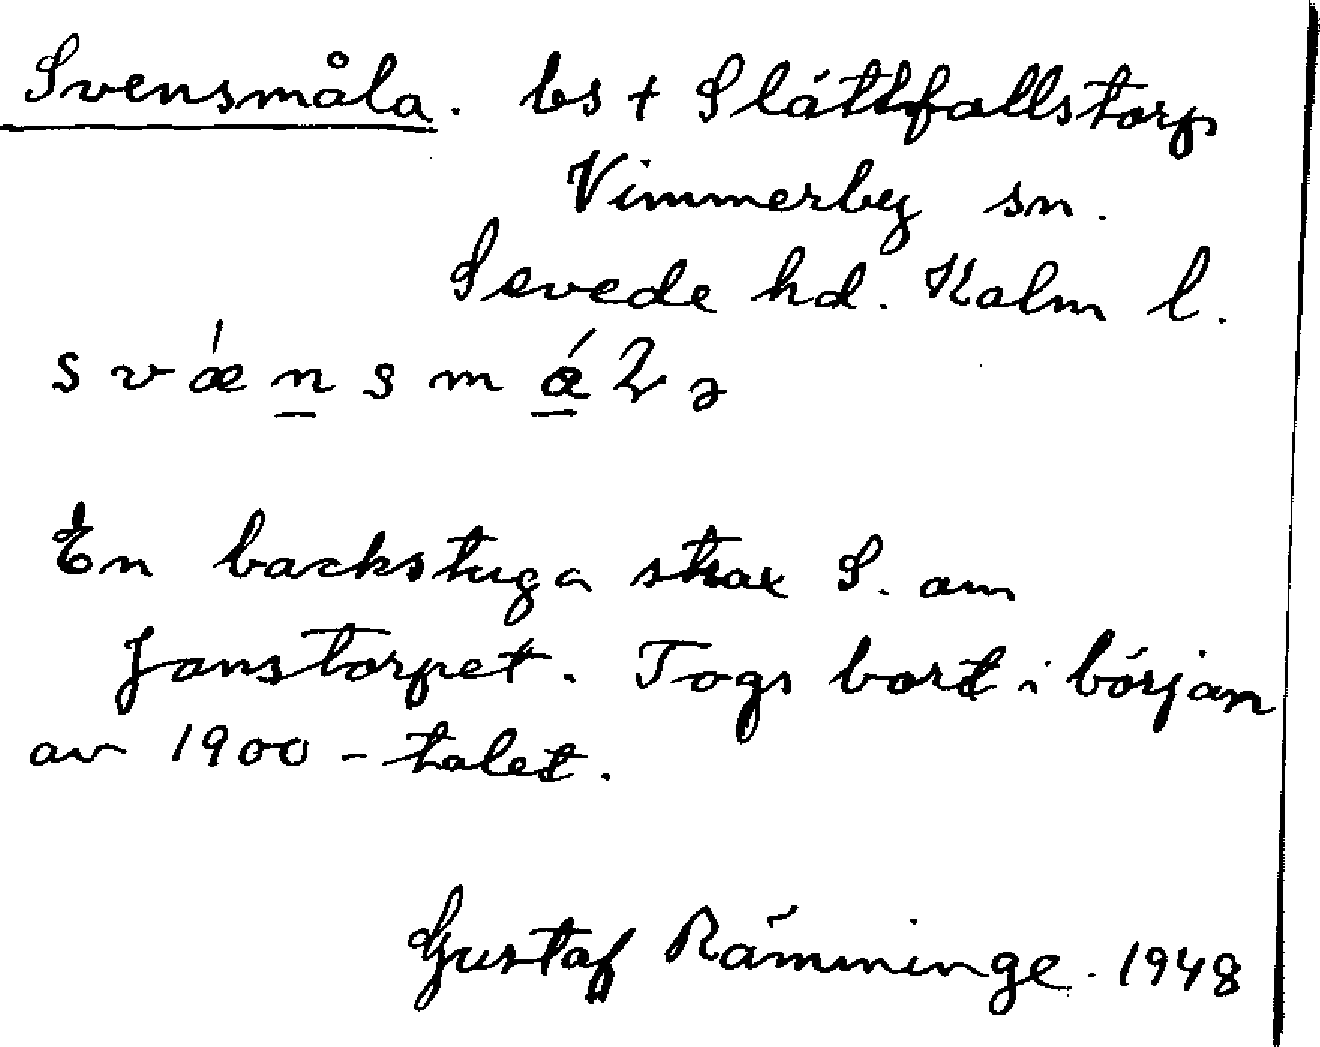 Svensmåla. bs + Slättfallstorp
Vimmerby sn.
Sevede hd. Kalm l.
svǽnsmáLə
En backstuga strax S. om
Janstorpet. Togs bort i början
av 1900-talet.
Gustaf Rämninge. 1948